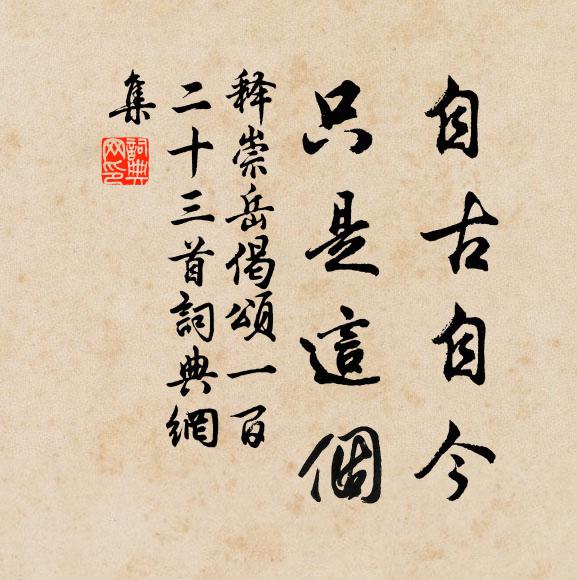 自古自今
只是這個
释崇岳偈頌一百
二十三首詞典網
集
詞典
网印